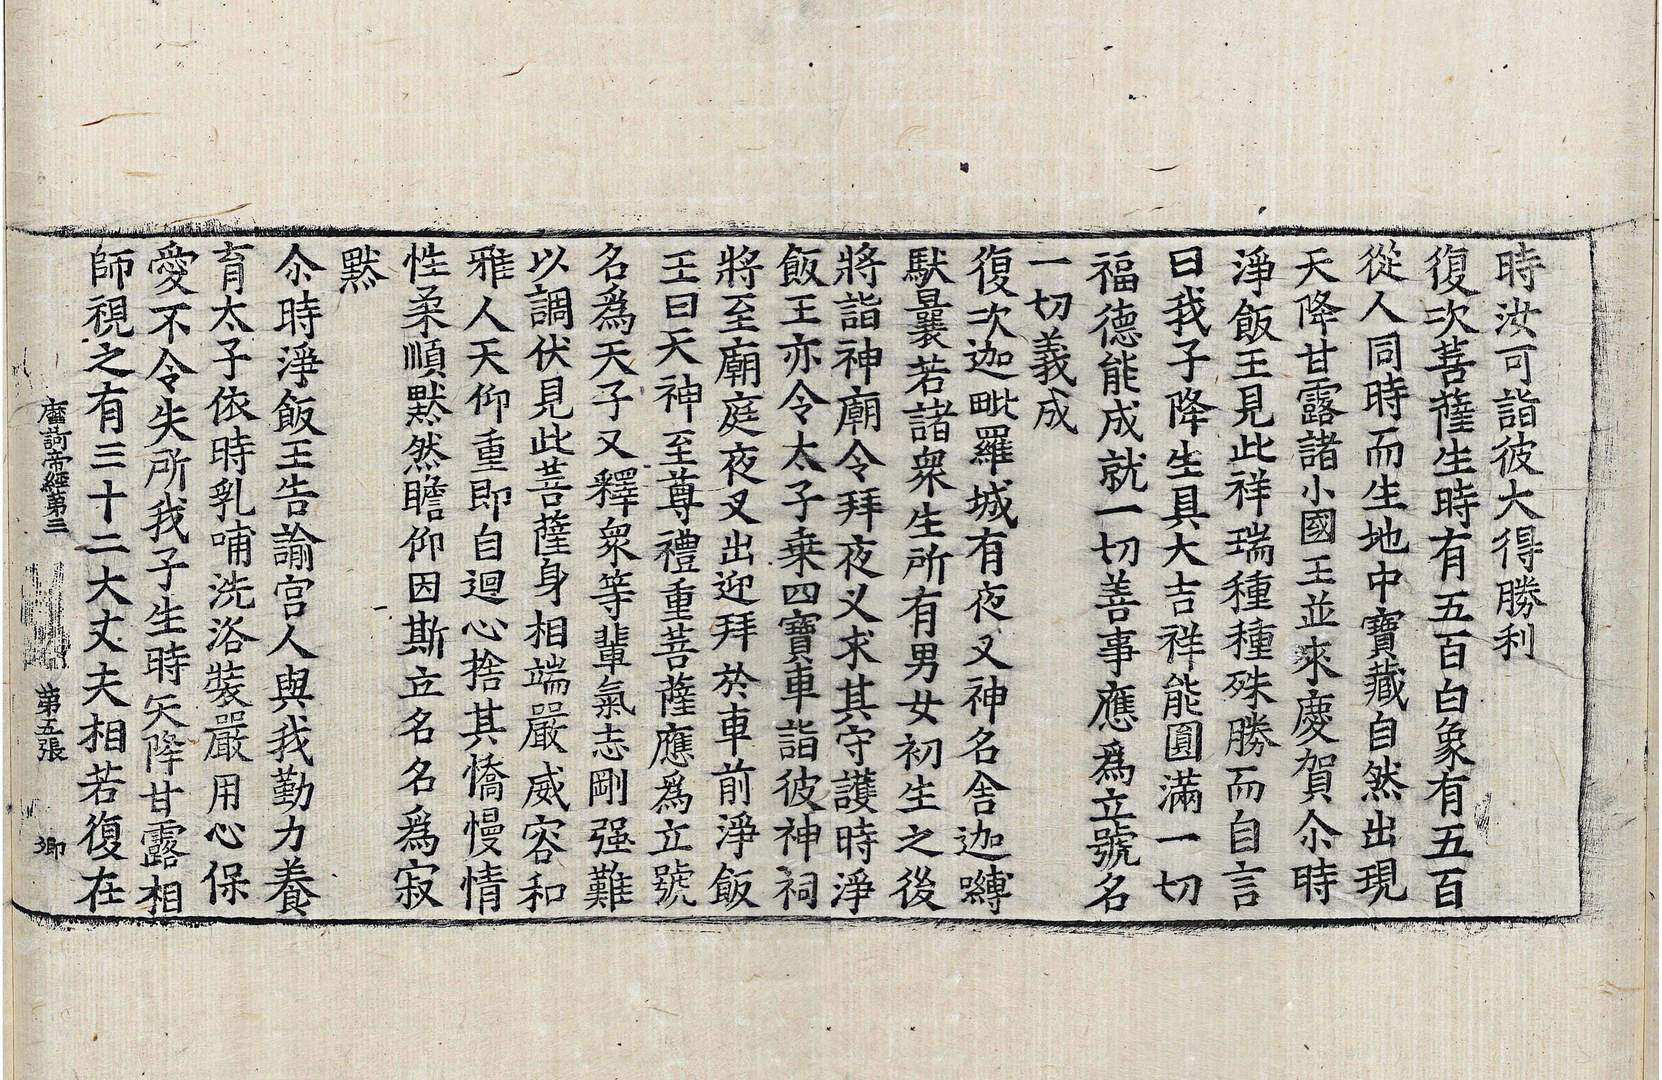 時汝可詣彼大得勝利
復次菩薩生時有五百白象有五百
從人同時而生地中寶藏自然出現
天降甘露諸小國王並來慶賀尒時
淨飯王見此祥瑞種種殊勝而自言
曰我子降生具大吉祥能圓滿一切
福德能成就一切善事應爲立號名
一切義成
復次迦毗羅城有夜叉神名舍迦嚩
馱曩若諸衆生所有男女初生之後
將詣神廟令拜夜叉求其守護時淨
飯王亦令太子乘四寶車詣彼神祠
將至廟庭夜叉出迎拜於車前淨飯
王曰天神至尊禮重菩薩應爲立號
名爲天子又釋衆等輩氣志剛强難
以調伏見此菩薩身相端嚴威容和
雅人天仰重即自迴心捨其憍慢情
性柔順默然瞻仰因斯立名名爲寂
默
尒時淨飯王告諭宮人與我勤力養
育太子依時乳哺洗浴裝嚴用心保
愛不令失所我子生時天降甘露相
師視之有三十二大丈夫相若復在
摩訶帝經第三 第五張 卿